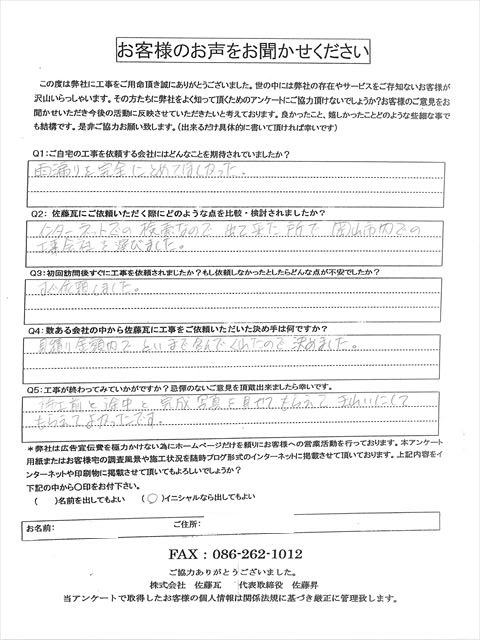 お客様のお声をお聞かせください
この度は弊社に工事をご用命頂き誠にありがとうございました。世の中には弊社の存在やサービスをご存知ないお客様が
沢山いらっしゃいます。その方たちに弊社をよく知って頂くためのアンケートにご協力頂けないでしょうか?お客様のご意見をお
聞かせいただき今後の活動に反映させていただきたいと考えております。良かったこと、嬉しかったことどのような些細な事で
も結構です。是非ご協力お願い致します。(出来るだけ具体的に書いて頂ければ幸いです)
Q1:ご自宅の工事を依頼する会社にはどんなことを期待されていましたか?
雨漏りを完全にとめてほしかった。
Q2: 佐藤瓦にご依頼いただく際にどのような点を比較・検討されましたか?
インターネットでの検索なので 出て来た所で 岡山市内での
工事会社を選びました。
Q3:初回訪問後すぐに工事を依頼されましたか?もし依頼しなかったとしたらどんな点が不安でしたか?
すぐ依頼しました。
Q4:数ある会社の中から佐藤瓦に工事をご依頼いただいた決め手は何ですか?
見積り金額内で といまで含んでくれたので 決めました。
Q5:工事が終わってみていかがですか?忌憚のないご意見を頂戴出来ましたら幸いです。
施工前と途中と完成写真を見せてもらえて
もらえてよかったです。
*弊社は広告宣伝費を極力かけない為にホームページだけを頼りにお客様への営業活動を行っております。本アンケート
用紙またはお客様宅の調査風景や施工状況を随時ブログ形式のインターネットに掲載させて頂いております。上記内容をイ
ンターネットや印刷物に掲載させて頂いてもよろしいでしょうか?
下記の中から〇印をお付下さい。
( )名前を出してもよい (○)イニシャルなら出してもよい
お名前: ご住所:
FAX:086-262-1012
ご協力ありがとうございました。
株式会社 佐藤瓦 代表取締役 佐藤昇
当アンケートで取得したお客様の個人情報は関係法規に基づき厳正に管理致します。